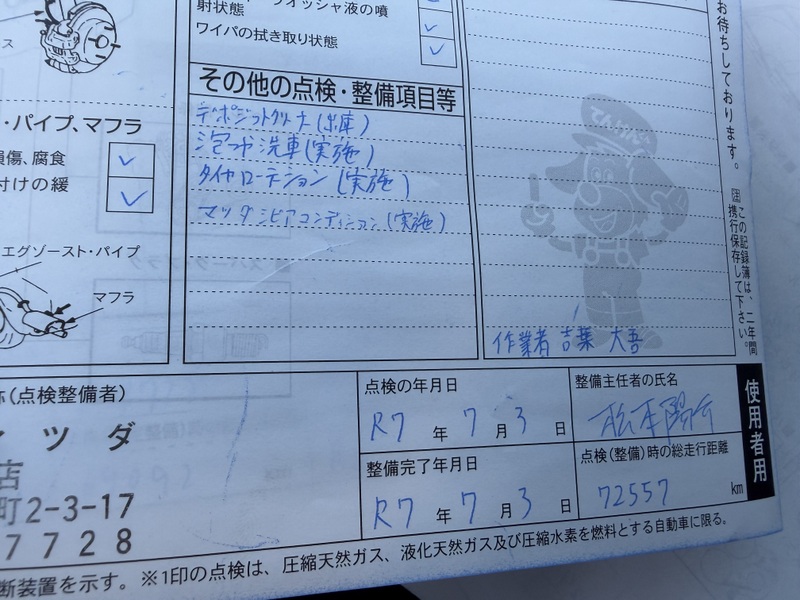 ウォッシャ液の噴
射状態
ワイパの拭き取り状態
その他の点検・整備項目等
デポジットクリーナ(出庫)
泡つや洗車(実施)
タイヤローテーション(実施)
マツダ コンディション(実施)
・パイプ、マフラ
損傷、腐食
付けの緩
エグゾースト・パイプ
マフラ
お待ちしております。
この記録簿は、二年間
携行保存して下さい。
てんけんくん
作業者 吉葉 大吾
(点検整備者)
マツダ
店
町2-3-17
7728
点検の年月日
R7年7月3日
整備完了年月日
R7年7月3日
整備主任者の氏名
松本
点検(整備)時の総走行距離
72557 km
使用者用
断装置を示す。※1印の点検は、圧縮天然ガス、液化天然ガス及び圧縮水素を燃料とする自動車に限る。